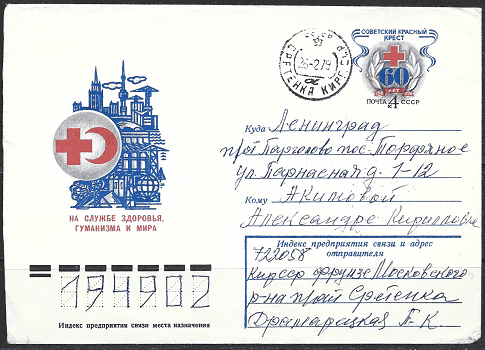 СОВЕТСКИЙ КРАСНЫЙ
КРЕСТ
60
ЛЕТ
ПОЧТА 4 СССР
К
СССР
СРЕТЕНКА КИРГ. ССР
26-2 79
НА СЛУЖБЕ ЗДОРОВЬЯ,
ГУМАНИЗМА И МИРА
Куда Ленинград
п/о Парголово пос. Торфяное
ул. Парнасная д. 1-12
Кому Акимовой
Александре Кирилловне
Индекс предприятия связи и адрес
отправителя
722058
Кир ССР Фрунзе Московского
р-на Сретенка
194902
Индекс предприятия связи места назначения